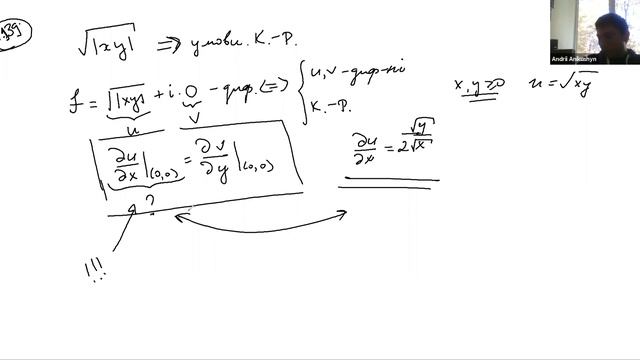 139.
√|xy| ⇒ умови К.-Р.
f = √|xy| + i·0 - диф. (⇔) { u, v - диф-ні
К.-Р.
u v
x, y ≥ 0 u = √xy
∂u/∂x |(0,0) = ∂v/∂y |(0,0)
∂u/∂x = √y / 2√x
?
!!!
Andrii Anikushyn